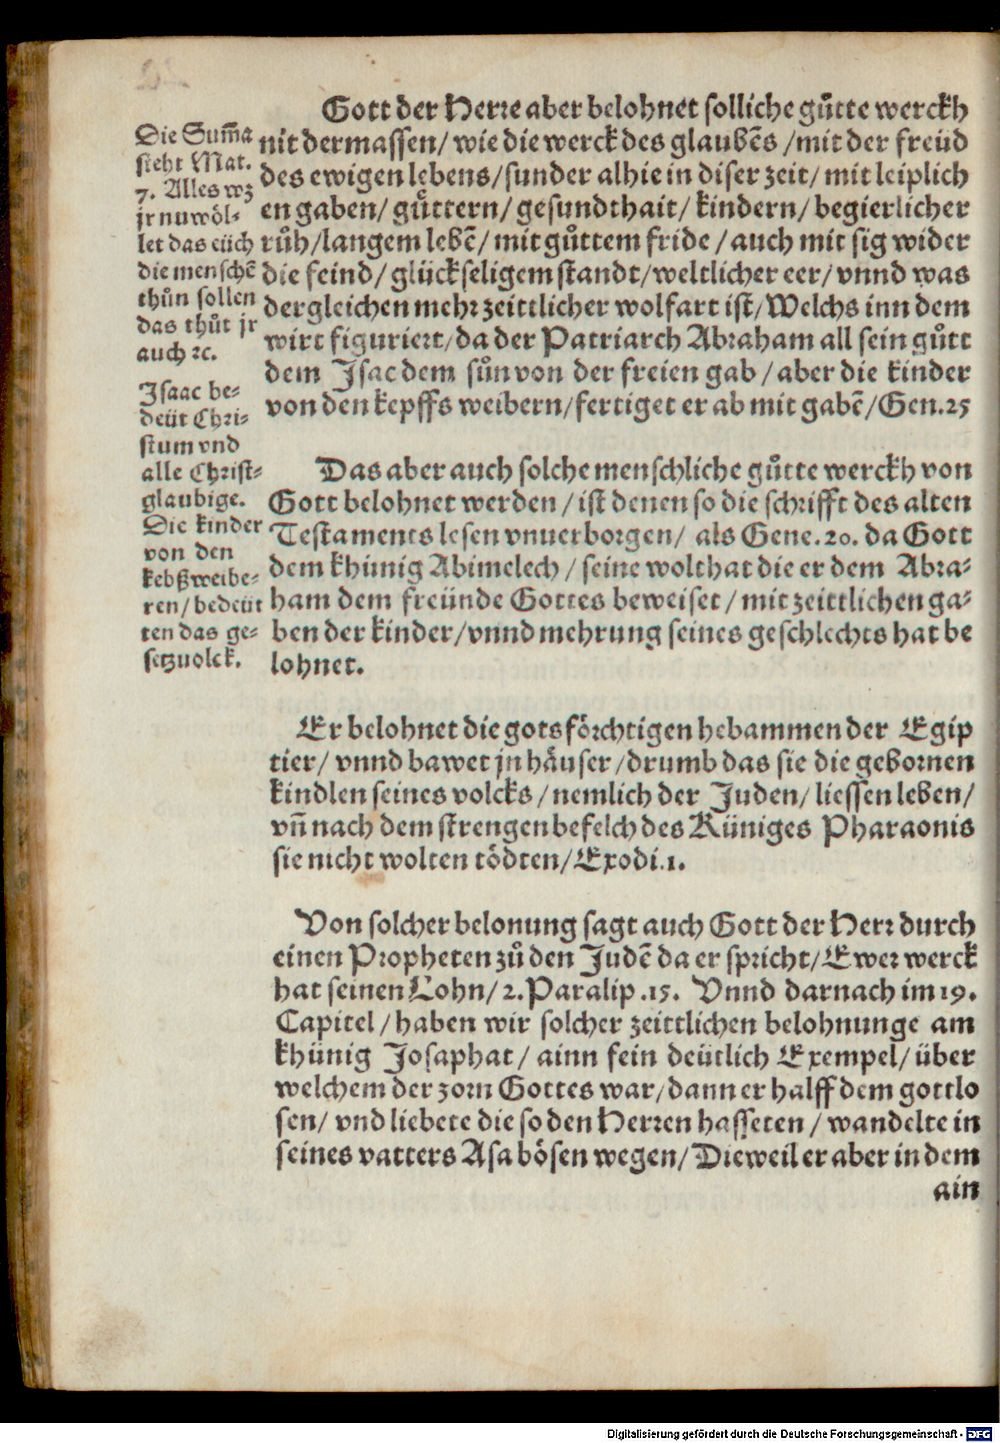 Gott der Herre aber belohnet solliche gůtte werckh
nit dermassen/ wie die werck des glaubẽs /mit der freüd
des ewigen lebens/sunder alhie in diser zeit/ mit leiplich
en gaben/ gůttern/ gesundthait/ kindern/ begierlicher
růh/langem lebẽ/ mit gůttem fride /auch mit sig wider
die feind/ glückseligem standt/weltlicher eer/ vnnd was
dergleichen mehr zeittlicher wolfart ist/Welchs inn dem
wirt figuriert/da der Patriarch Abraham all sein gůtt
dem Jsac dem sůn von der freien gab / aber die kinder
von den kepffs weibern/fertiget er ab mit gabẽ/Gen.25
Die Sum̃a
steht Mat.
7. Alles wz
jr nu wöl⸗
let das eüch
die menschẽ
thůn sollen
das thůt jr
auch ꝛc.
Jsaac be⸗
deüt Chri⸗
stum vnd
alle Christ⸗
glaubige.
Die kinder
von den
kebßweibe⸗
ren/ bedeüt
ten das ge⸗
setzuolck.
Das aber auch solche menschliche gůtte werckh von
Gott belohnet werden / ist denen so die schrifft des alten
Testaments lesen vnuerborgen/ als Gene.20. da Gott
dem khünig Abimelech / seine wolthat die er dem Abra⸗
ham dem freünde Gottes beweiset / mit zeittlichen ga⸗
ben der kinder/vnnd mehrung seines geschlechts hat be
lohnet.
Er belohnet die gotsförchtigen hebammen der Egip
tier/ vnnd bawet jn häuser /drumb das sie die gebornen
kindlen seines volcks / nemlich der Juden/ liessen leben/
vñ nach dem strengen befelch des Küniges Pharaonis
sie nicht wolten tödten/Exodi.1.
Von solcher belonung sagt auch Gott der Herr durch
einen Propheten zů den Judẽ da er spricht/Ewer werck
hat seinen Lohn/ 2.Paralip.15. Vnnd darnach im 19.
Capitel / haben wir solcher zeittlichen belohnunge am
khünig Josaphat/ ainn fein deütlich Exempel/ über
welchem der zorn Gottes war/dann er halff dem gottlo
sen/ vnd liebete die so den Herren hasseten / wandelte in
seines vatters Asa bösen wegen/Dieweil er aber in dem
ain
Digitalisierung gefördert durch die Deutsche Forschungsgemeinschaft - DFG